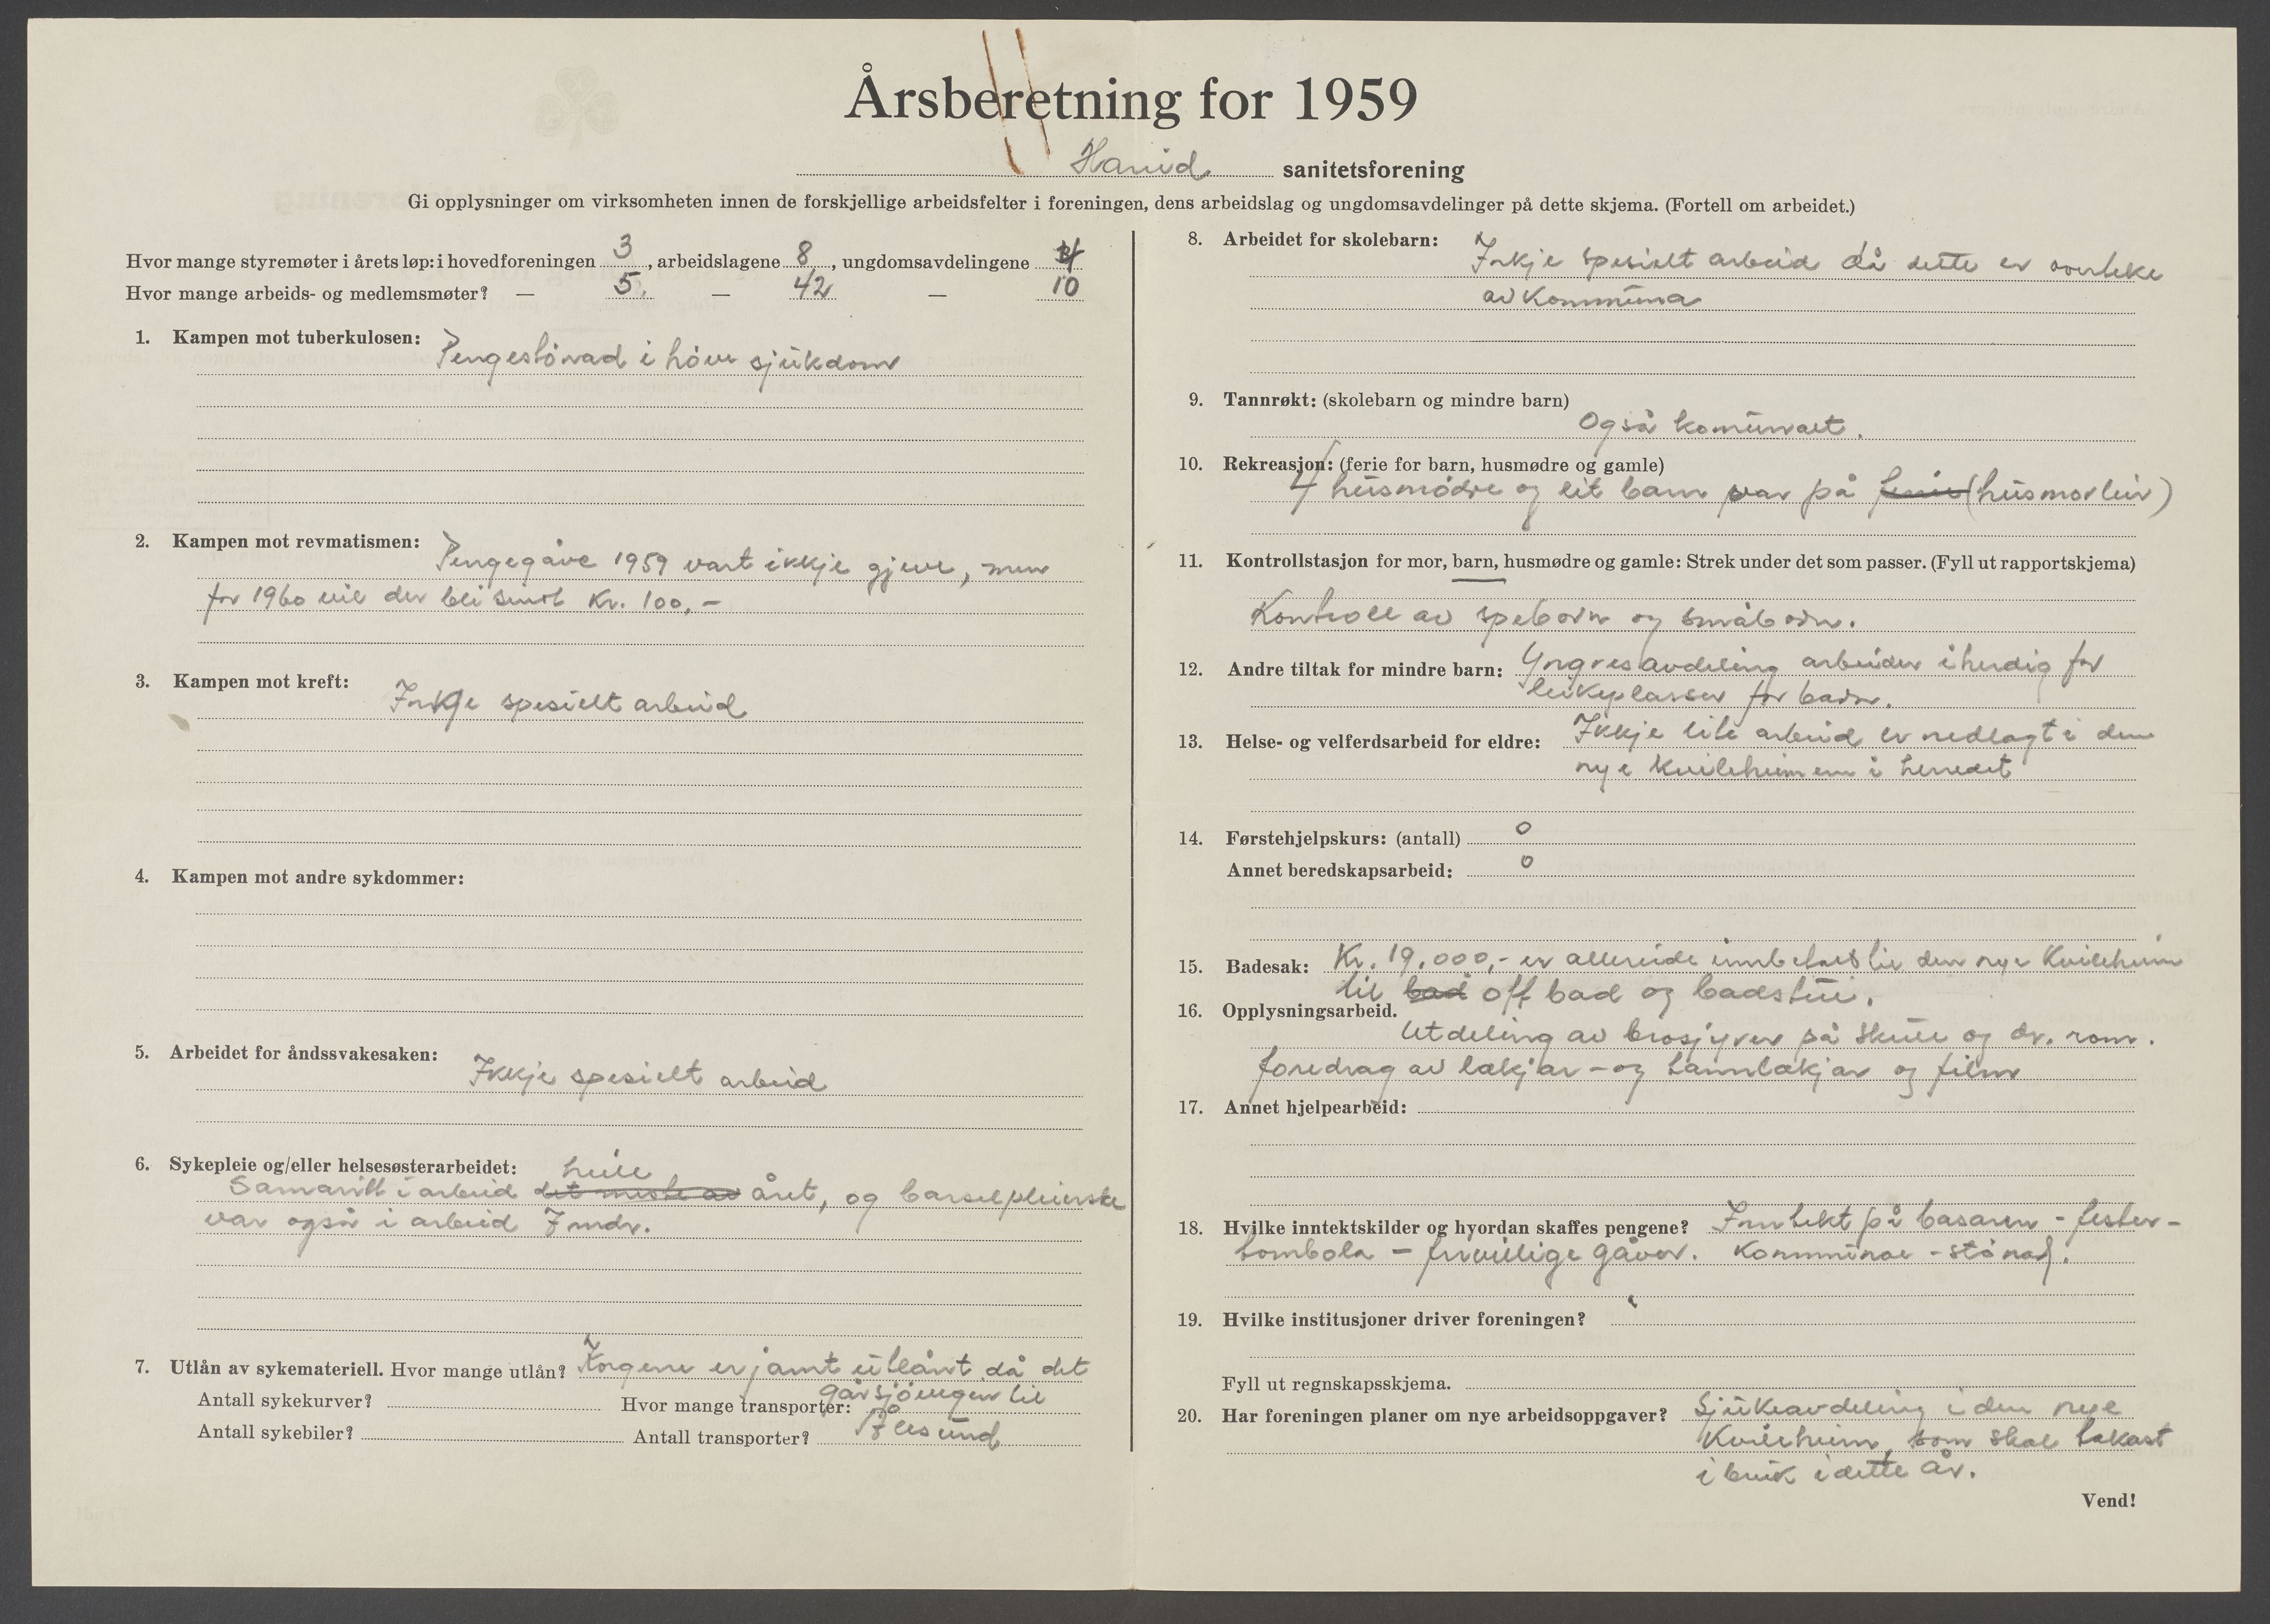 Årsberetning for 1959
Hareid sanitetsforening
Gi opplysninger om virksomheten innen de forskjellige arbeidsfelter i foreningen, dens arbeidslag og ungdomsavdelinger på dette skjema. (Fortell om arbeidet.)
Hvor mange styremøter i årets løp: i hovedforeningen 3, arbeidslagene 8, ungdomsavdelingene 4
Hvor mange arbeids- og medlemsmøter? — 5. — 42 — 10
1. Kampen mot tuberkulosen: Pengestönad i höve sjukdom
2. Kampen mot revmatismen: Pengegåve 1959 vart ikkje gjeve, men
for 1960 vil der bli sendt Kr. 100,-
3. Kampen mot kreft: Inkje spesielt arbeid
4. Kampen mot andre sykdommer:
5. Arbeidet for åndssvakesaken: Ikkje spesielt arbeid
6. Sykepleie og/eller helsesøsterarbeidet: heile
Samaritt i arbeid det meste av året, og barselpleierske
var også i arbeid 7 mndr.
7. Utlån av sykemateriell. Hvor mange utlån? Korgene er jamt utlånt då det
Antall sykekurver? Hvor mange transporter: går sjövegen til
Antall sykebiler? Antall transporter? Ålesund
8. Arbeidet for skolebarn: Inkje spesielt arbeid då dette er overteke
av kommuna
9. Tannrøkt: (skolebarn og mindre barn)
Også komunalt.
10. Rekreasjon: (ferie for barn, husmødre og gamle)
4 husmödre og eit barn var på ferie (husmorleir)
11. Kontrollstasjon for mor, barn, husmødre og gamle: Strek under det som passer. (Fyll ut rapportskjema)
Kontroll av speborn og småborn.
12. Andre tiltak for mindre barn: Yngres avdeling arbeider iherdig for
leikeplasser for barn.
13. Helse- og velferdsarbeid for eldre: Ikkje lite arbeid er nedlagt i den
nye kvileheimen i herredet
14. Førstehjelpskurs: (antall) 0
Annet beredskapsarbeid: 0
15. Badesak: Kr. 19.000,- er allereide innbetalt til den nye Kvileheim
til bad off bad og badstue.
16. Opplysningsarbeid.
Utdeling av brosjyrer på skule og dr. rom.
foredrag av lækjar- og tannlækjar og film
17. Annet hjelpearbeid:
18. Hvilke inntektskilder og hvordan skaffes pengene? Inntekt på basarer - fester -
tombola - frivillige gåver. Kommunal - stönad.
19. Hvilke institusjoner driver foreningen?
Fyll ut regnskapsskjema.
20. Har foreningen planer om nye arbeidsoppgaver? Sjukeavdeling i den nye
Kvileheim, som skal takast
i bruk i dette år.
Vend!